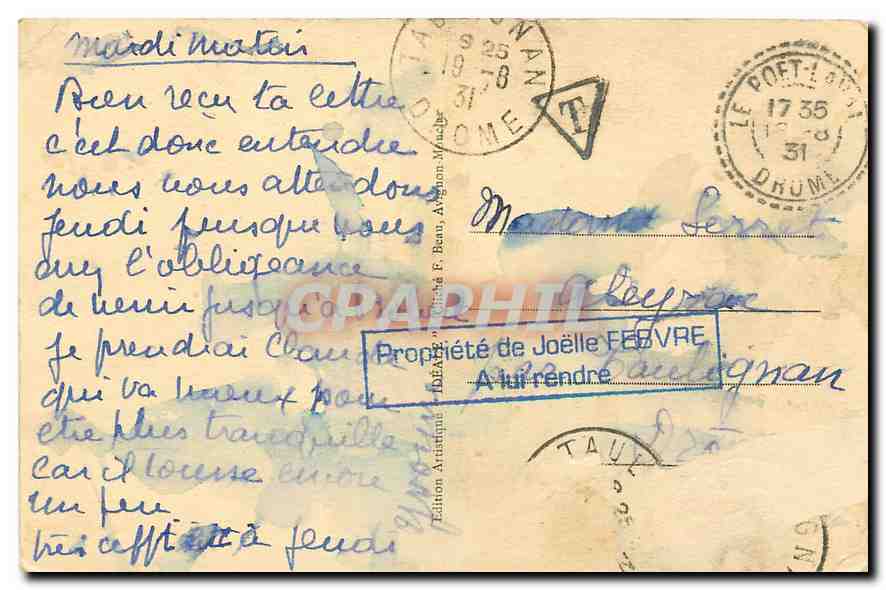 Mardi Matin
Bien reçu ta lettre
c'est donc entendu
nous vous attendons
Jeudi puisque vous
avez l'obligeance
de venir jusqu'à
Je prendrai Claude
qui va mieux pour
etre plus tranquille
car il tousse encore
un peu
à jeudi
TAULIGNAN
9 25
19 -8
31
DROME
T
LE POET-LAVAL
17 35
18 -8
31
DROME
Edition Artistique "IDEALE" Cliché F. Beau, Avignon-Monclar
Madame Serret
Taulignan
Propriété de Joëlle FEBVRE
A lui rendre
CPAPHIL
TAUL
GNAN